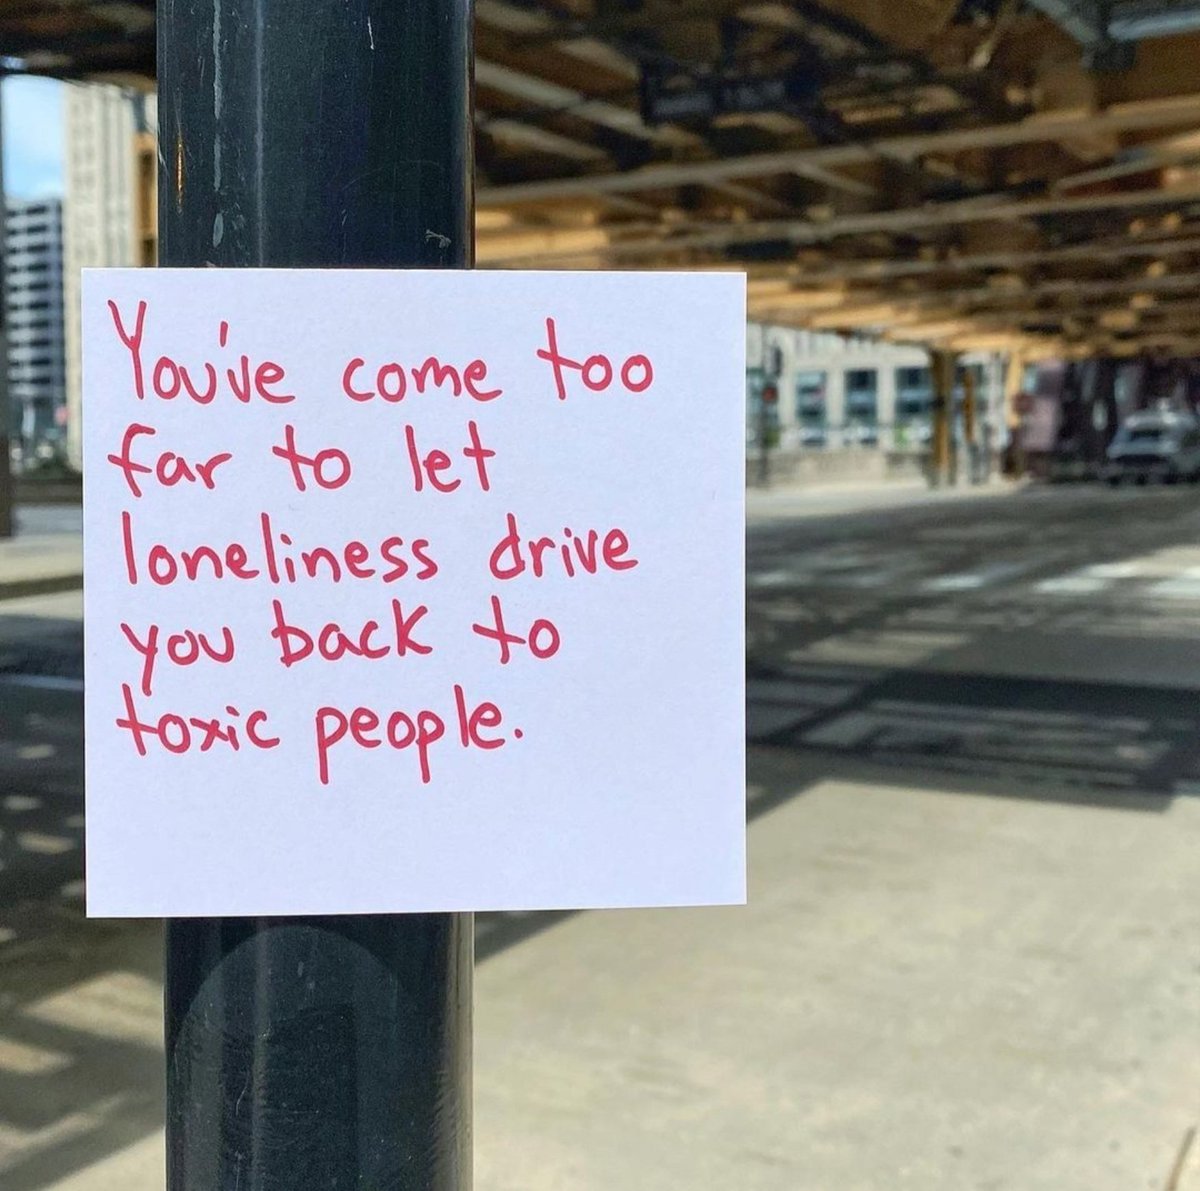 You've come too
far to let
loneliness drive
you back to
toxic people.